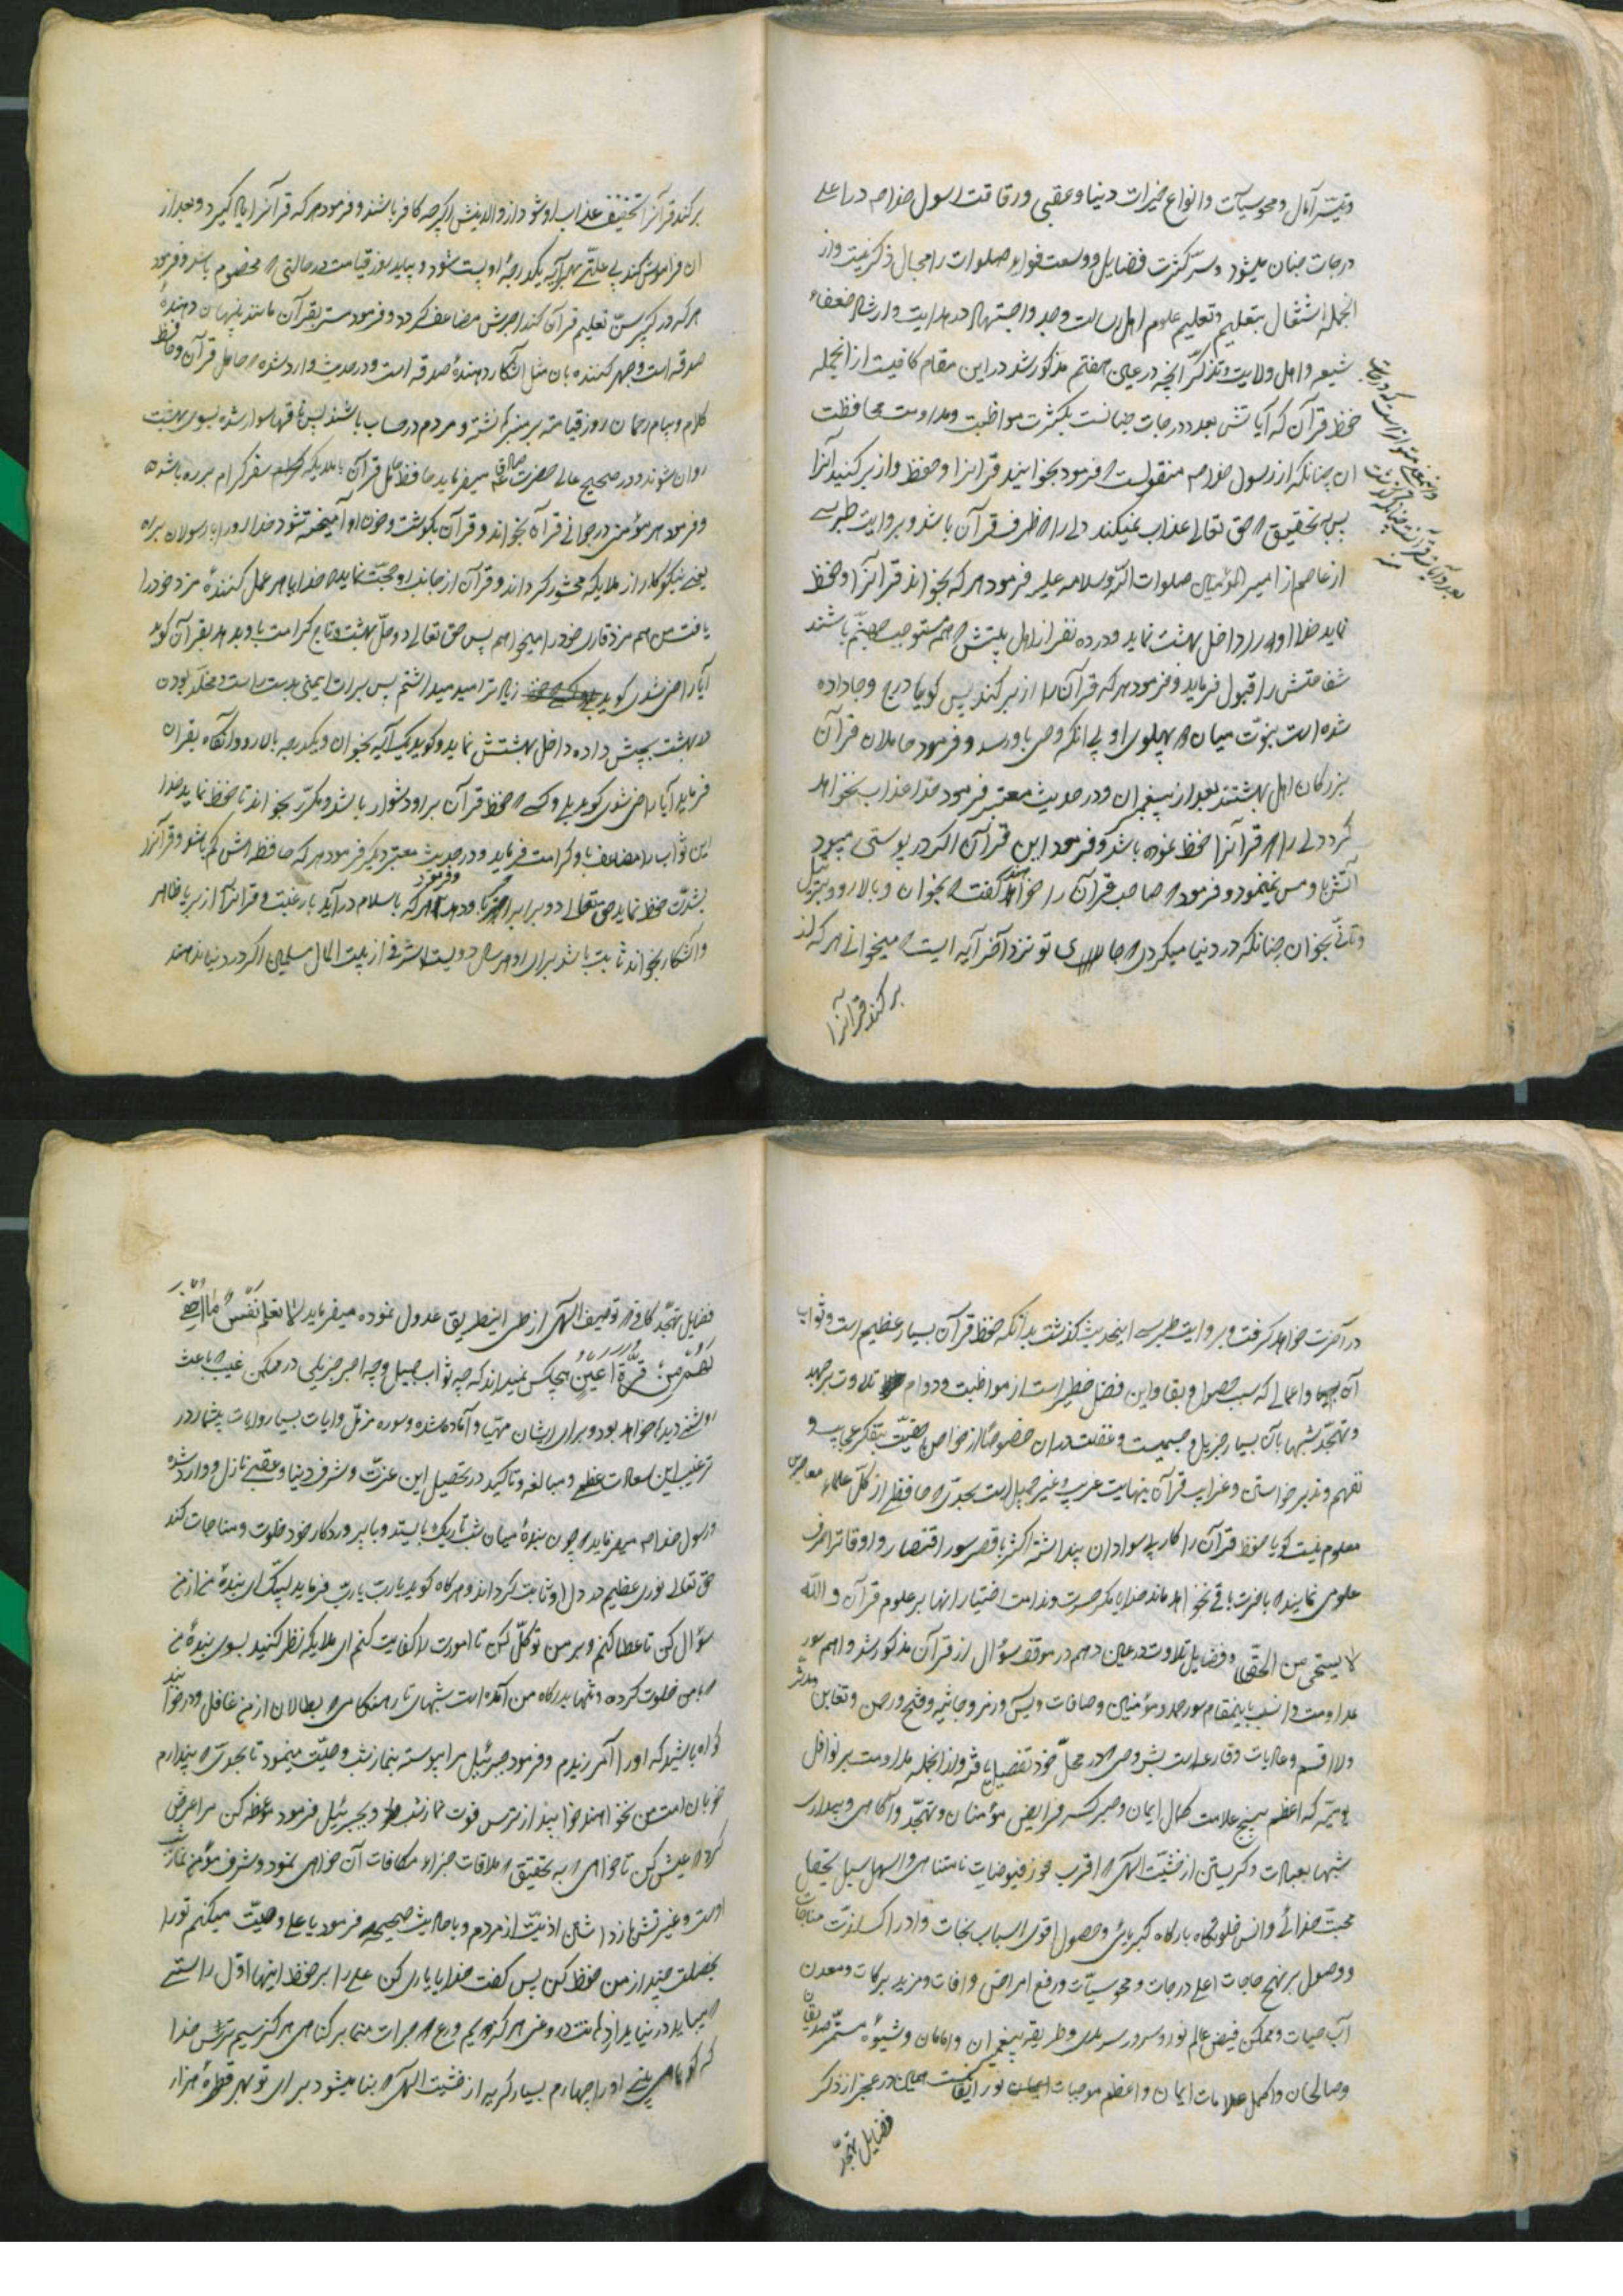 و تیسّر آمال و محو سیآت و انواع خیرات دنیا و عقبی و رفاقت رسول خدا صم در اعلی
درجات جنان میشود و سرّ کثرت فضایل و وسعت فواید صلوات را مجال ذکر نیست و از
انجمله اشتغال بتعلیم و تعلیم علوم اهل رسالت و جد و اجتهاد در هدایت و ارشاد ضعفاء
شیعه و اهل ولایت و تذکّر آنچه در عین هفتم مذکور شد در این مقام کافیست از انجمله
حفظ قرآن که آیاتش بعدد درجات جنانست بکثرت مواظبت و مداومت محافظت
ان چنانکه از رسول خدا صم منقولست که فرمود بخوانید قرانرا و حفظ و از بر کنید آنرا
پس بتحقیق که حق تعالی عذاب نمیکند دلی را که ظرف قرآن باشد و بروایت طبرسی
از عاصم از امیر المؤمنین صلوات الله و سلامه علیه فرمود هر که بخواند قرآنرا و حفظ
نماید خدا او را داخل بهشت نماید و در ده نفر از اهل بیتش که همه مستوجب جهنّم باشند
شفاعتش را قبول فرماید و فرمود هر که قرآن را از بر کند پس گویا درج و جا داده
شده است نبوّت میان دو پهلوی او بی انکه وحی باو رسد و فرمود حاملان قرآن
بزرگان اهل بهشتند بعد از پیغمبران و در حدیث معتبر فرمود خدا عذاب نخواهد
کرد دلی را که قرآنرا حفظ نموده باشد و فرمود این قرآن اگر در پوستی میبود
آتش باو مس نمینمود و فرمود که صاحب قرآن را خواهند گفت که بخوان و بالا رو و بترتیل
و تأنّی بخوان چنانکه در دنیا میکردی که جای تو نزد آخر آیه ایست که میخوانی هر که از
بر کند قرآنرا
بر کند قرآنرا تخفیف عذاب او شود از والدینش اگر چه کافر باشند و فرمود هر که قرآنرا یاد گیرد و بعد از
ان فراموش کند بی علّتی هر آیه یکدرجهٔ او پست شود و بیاید روز قیامت در حالتی که مخصوم باشد و فرمود
هر که در کبر سنّ تعلیم قرآن کند اجرش مضاعف گردد و فرمود مستر بقرآن مانند پنهان دهندهٔ
صدقه است و جهر کننده بان مثل آشکار دهندهٔ صدقه است و در حدیث وارد شده که حامل قرآن و حافظ
کلام و پیام رحمان روز قیامت بر منبر نشسته و مردم در حساب باشند پس بناقها سوار شده بسوی بهشت
روان شوند و در صحیح عالی حضرت صادق ع میفرماید حافظ عامل قرآن با ملایکه سفر کرام برره باشد
و فرمود هر مؤمنی در جوانی قرآن بخواند و قرآن بگوشت و خون او آمیخته شود خدا او را با رسولان برره
یعنی نیکوکار از ملایکه محشور گرداند و قرآن از جانب او حجّت نماید که خدایا هر عمل کنندهٔ مزد خود را
یافت من هم مزد قاری خود را میخواهم پس حق تعالی دو حلّ بهشت و تاج کرامت باو بدهد بقرآن گوید
آیا راضی شدی گوید زیاده ترا امید میداشتم پس برات ایمنی بدست راست و مخلّد بودن
در بهشت بچپش داده داخل بهشتش نماید و گوید یک آیه بخوان و یکدرجه بالا رو و آنگاه بقران
فرماید آیا راضی شدی گوید بلی و کسی که حفظ قرآن بر او دشوار باشد و مکرّر بخواند تا حفظ نماید خدا
این ثواب را مضاعف باو کرامت فرماید و در حدیث معتبر دیگر فرمود هر که حافظه اش کم باشد و قرآنرا
بشدّت حفظ نماید حق تعالی دو برابر اجر باو دهد و فرمود هر که باسلام درآید با رغبت و قرآنرا از بر یا ظاهر
و آشکار بخواند ثابت باشد برای او هر سال دویست اشرفی از بیت المال مسلمین اگر در دنیا ندهند
در آخرت خواهد گرفت و بروایت طبرسی اینحدیث گذشت بدانکه حفظ قرآن بسیار عظیم است و ثواب
آن و اعمالی که سبب حصول و بقاء این فضل خطیر است از مواظبت و دوام تلاوت بر جهد
و تهجّد شبها بآن بسیار جزیل و جسیمست و غفلت در ان خصوصاً از خواص بحقیّت بتفکّر عجایب و
تفهم و تدبر خواستن و غرایب قرآن بنهایت غریب و غیر جمیل است بحدّی که حافظی از کلّ علماء معاصرین
معلوم نیست گویا حفظ قرآن را کار بی سوادان پنداشته اکثر باقصر سور اقتصار و اوقاترا صرف
علومی نمایند که باخرت باقی نخواهد ماند خدایا مگر حسرت و ندامت اختیار انها بر علوم قرآن و الله
لا یستحی من الحق و فضایل تلاوت در عین دهم در موقف سؤال از قرآن مذکور شد و اهم سور
مداومت در اینمقام سور حمد و مؤمنین و صافات و یس و زمر و جاثیه و فتح و رحمن و تغابن و مدّثر
و لا اقسم و عادیات و قارعه است بشروحی که در محلّ خود تفصیل یافته و از انجمله مداومت بر نوافل
یومیّه که اعظم پنج علامت کمال ایمان و جبر کسر فرایض مؤمنان و تهجّد و آگاهی و بیداری
شبها بعبادت و گریستن از خشیّت الهی که اقرب محوز فیوضات نامتناهی و اسهل سبل تحصیل
محبت خدائی و انس خلوتگاه بارگاه کبریائی و حصول اقوی اسباب نجات و ادراک لذّت مناجات
و وصول بر نهج حاجات اعلی درجات و محو سیّآت و رفع امراض و افات و مزید برکات و معدن
آب حیات و ممکن فیض عالم نور و سرور سرمدی و طریقه پیغمبران و امامان و شیوهٔ مستمرّ صدیقان
و صالحان و اکمل علامات ایمان و اعظم موجبات نور ایقانست همین در عجز از ذکر
فضایل تهجّد
فضایل تهجّد کافی که توصیف الهی از طی اینطریق عدول نموده میفرماید لا تعلم نفس ما اخفی
لهم من قرّة اعین هیچکس نمیداند که چه ثواب جمیل و چه اجر جزیلی در ممکن غیب که باعث
روشنی دیدها خواهد بود و برای ایشان مهیّا و آماده شده و سوره مزمّل و ایات بسیار و روایات بیشمار در
ترغیب این سعادت عظمی و مبالغه و تاکید در تحصیل این عزّت و شرف دنیا و عقبی نازل و وارد شده
و رسول خدا صم میفرماید که چون بندهٔ میان شب تاریک بایستد و با پروردگار خود خلوت و مناجات کند
حق تعالی نوری عظیم در دل او ثابت گرداند و هر گاه گوید یا ربّ یا ربّ فرماید لبیک ای بندهٔ من از من
سؤال کن تا عطا کنم و بر من توکّل کن تا امورت را کفایت کنم ای ملایکه نظر کنید بسوی بندهٔ من
که با من خلوت کرده و تنها بدرگاه من آمده است شبهای تار هنگامی که بطالان از من غافل و در خوابند
گواه باشید که او را آمرزیدم و فرمود جبرئیل مرا پیوسته بنماز شب وصیّت مینمود تا بحدّی که پندارم
خوبان امت من نخواهند خوابید از ترس فوت نماز شب و بجبرئیل فرمود موعظه کن مرا عرض
کرد که عیش کن تا خواهی که به تحقیق که ملاقات جزاء مکافات آن خواهی نمود و شرف مؤمن نماز شب
است و عزّتش باز داشتن اذیّت از مردم و باحادیث صحیحه فرمود یا علی وصیّت میکنم تو را
بخصلت چند از من حفظ کن پس گفت خدایا یاری کن علی را بر حفظ اینها اول راستی
که گویا می بینی او را چهارم بسیار گریه از خشیت الهی که بنا میشود برای تو بهر قطرهٔ هزار